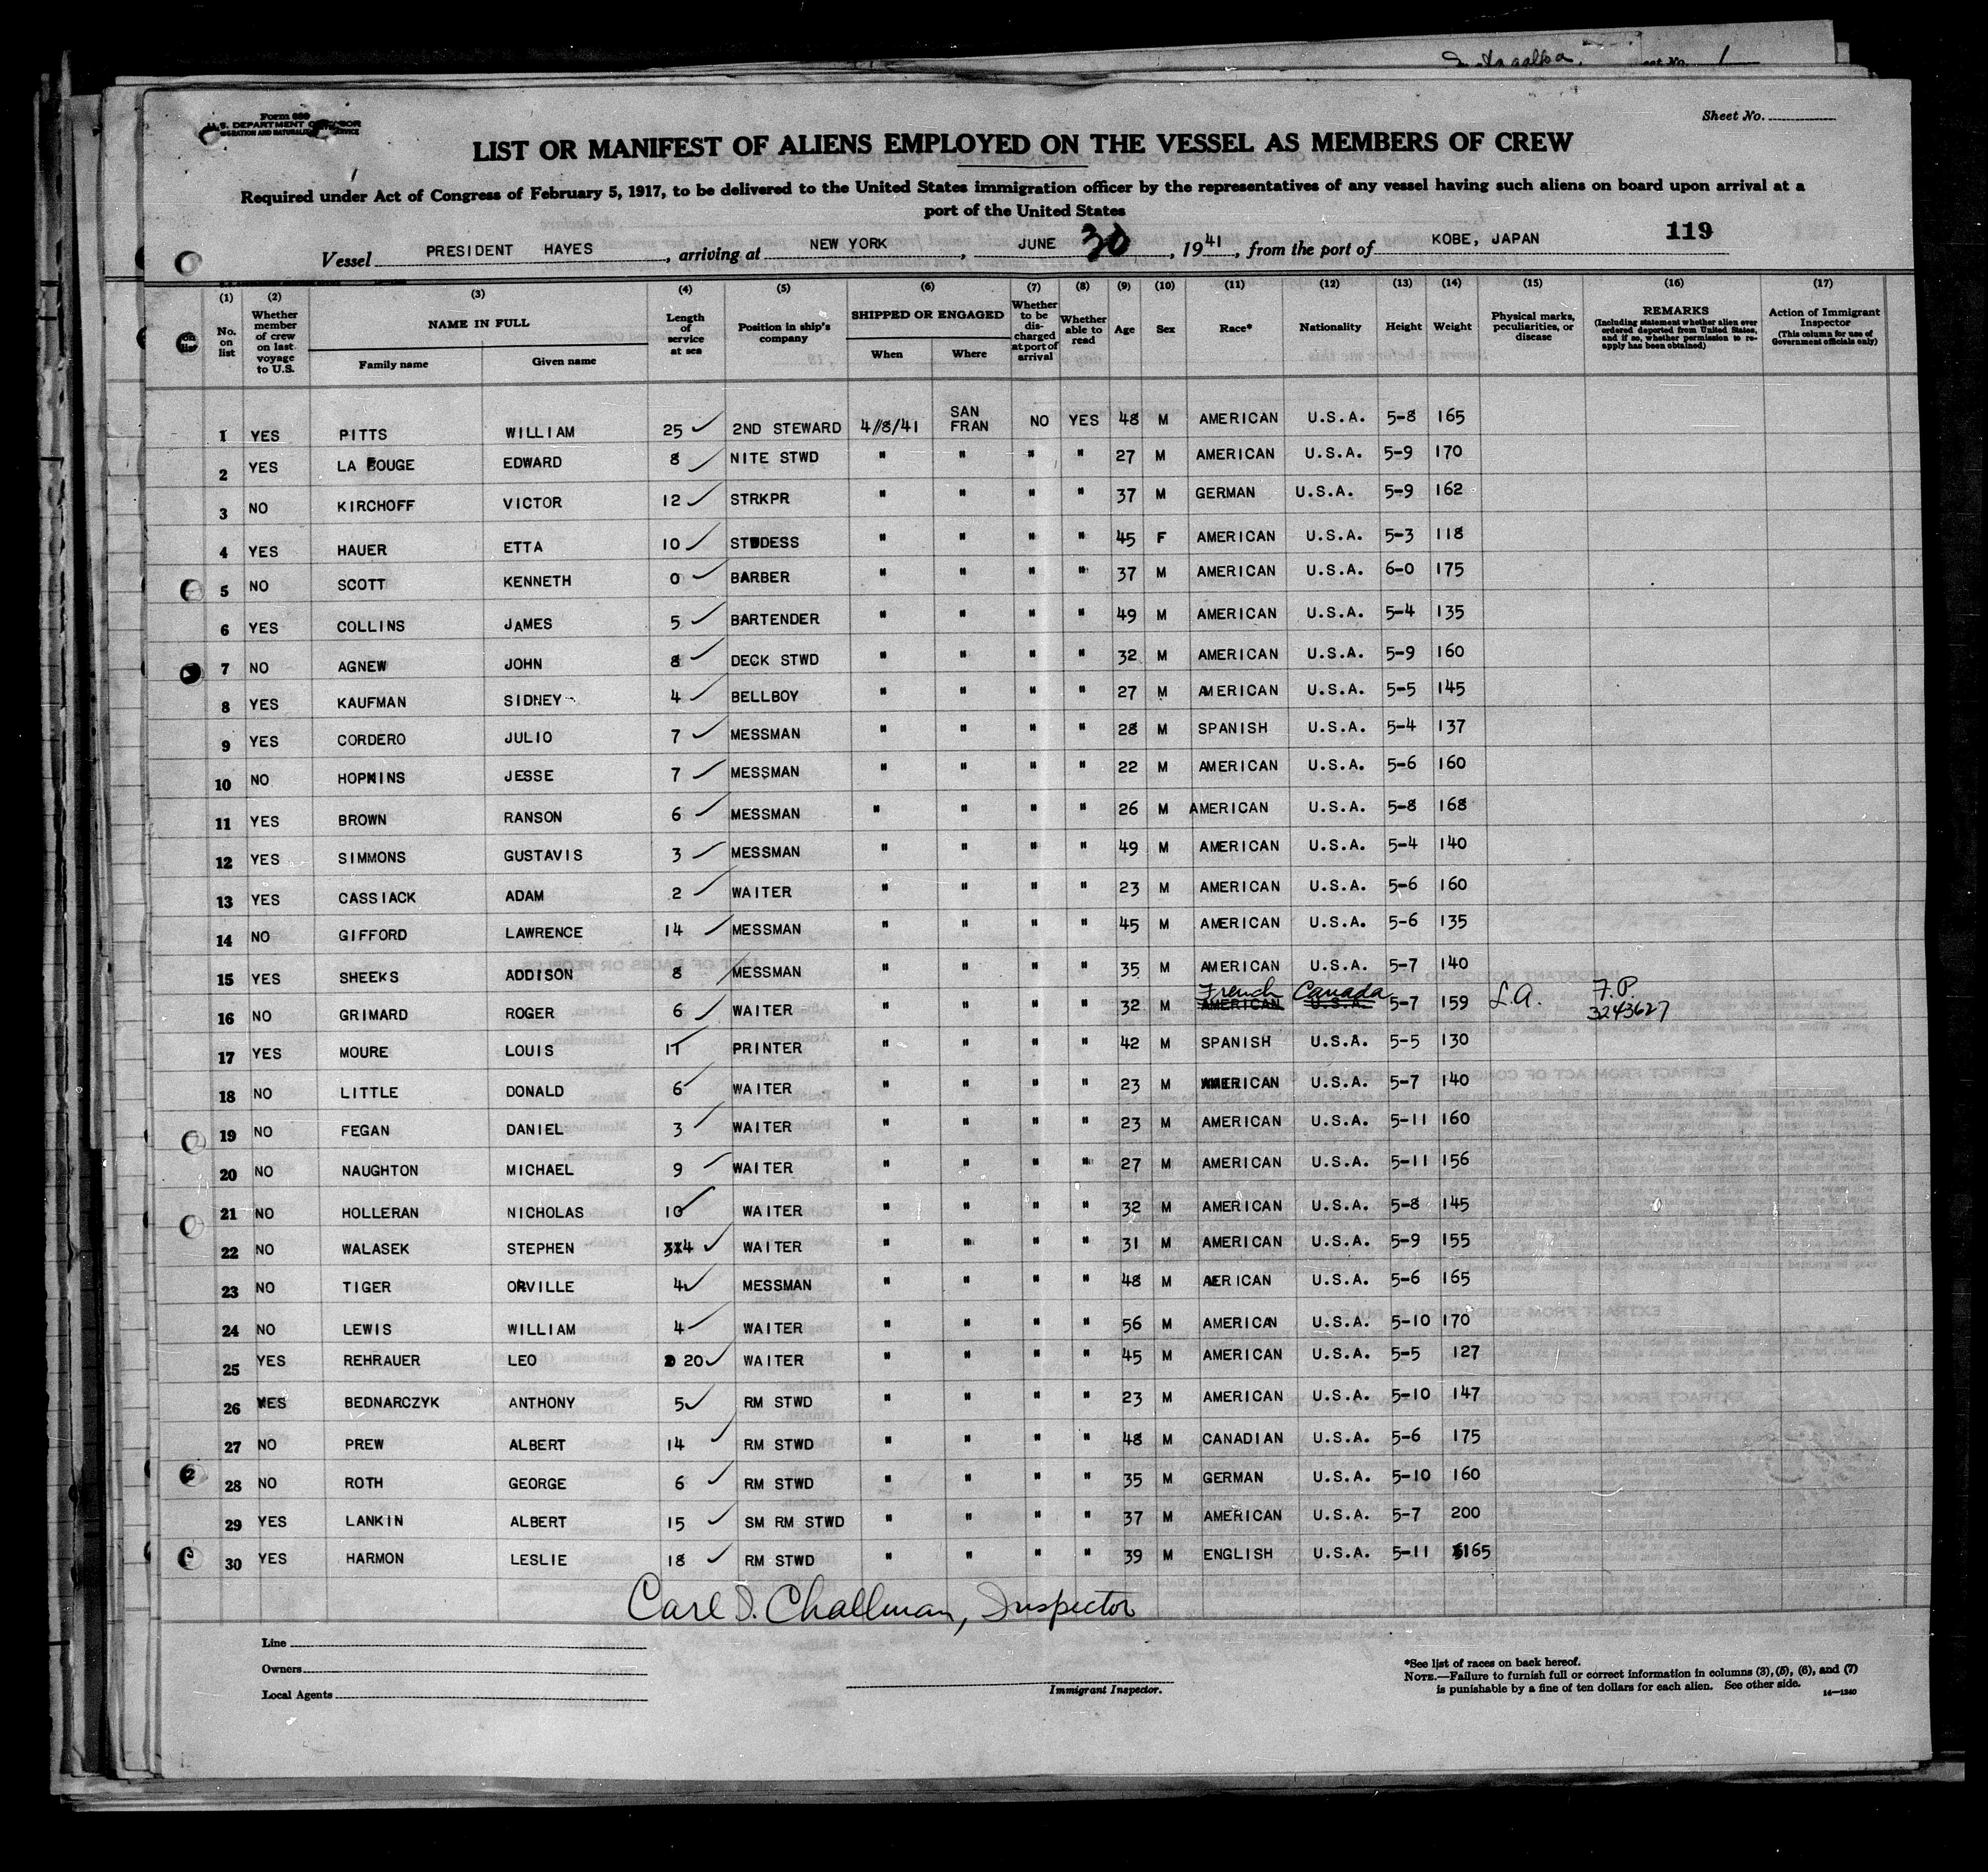 Sheet No.
Form 680
U. S. DEPARTMENT OF LABOR
IMMIGRATION AND NATURALIZATION SERVICE
LIST OR MANIFEST OF ALIENS EMPLOYED ON THE VESSEL AS MEMBERS OF CREW
Required under Act of Congress of February 5, 1917, to be delivered to the United States immigration officer by the representatives of any vessel having such aliens on board upon arrival at a
port of the United States
Vessel PRESIDENT HAYES, arriving at NEW YORK, JUNE 30, 1941, from the port of KOBE, JAPAN 119
(1) No. on list (2) Whether member of crew on last voyage to U.S. (3) NAME IN FULL Family name Given name (4) Length of service at sea (5) Position in ship's company (6) SHIPPED OR ENGAGED When Where (7) Whether to be discharged at port of arrival (8) Whether able to read (9) Age (10) Sex (11) Race* (12) Nationality (13) Height (14) Weight (15) Physical marks, peculiarities, or disease (16) REMARKS (Including statement whether alien ever ordered deported from United States, and if so, whether permission to re-apply has been obtained) (17) Action of Immigrant Inspector (This column for use of Government officials only)
1 YES PITTS WILLIAM 25 2ND STEWARD 4/8/41 SAN FRAN NO YES 48 M AMERICAN U.S.A. 5-8 165
2 YES LA EOUGE EDWARD 8 NITE STWD " " " " 27 M AMERICAN U.S.A. 5-9 170
3 NO KIRCHOFF VICTOR 12 STRKPR " " " " 37 M GERMAN U.S.A. 5-9 162
4 YES HAUER ETTA 10 STWDESS " " " " 45 F AMERICAN U.S.A. 5-3 118
5 NO SCOTT KENNETH 0 BARBER " " " " 37 M AMERICAN U.S.A. 6-0 175
6 YES COLLINS JAMES 5 BARTENDER " " " " 49 M AMERICAN U.S.A. 5-4 135
7 NO AGNEW JOHN 8 DECK STWD " " " " 32 M AMERICAN U.S.A. 5-9 160
8 YES KAUFMAN SIDNEY 4 BELLBOY " " " " 27 M AMERICAN U.S.A. 5-5 145
9 YES CORDERO JULIO 7 MESSMAN " " " " 28 M SPANISH U.S.A. 5-4 137
10 NO HOPKINS JESSE 7 MESSMAN " " " " 22 M AMERICAN U.S.A. 5-6 160
11 YES BROWN RANSON 6 MESSMAN " " " " 26 M AMERICAN U.S.A. 5-8 168
12 YES SIMMONS GUSTAVIS 3 MESSMAN " " " " 49 M AMERICAN U.S.A. 5-4 140
13 YES CASSIACK ADAM 2 WAITER " " " " 23 M AMERICAN U.S.A. 5-6 160
14 NO GIFFORD LAWRENCE 14 MESSMAN " " " " 45 M AMERICAN U.S.A. 5-6 135
15 YES SHEEKS ADDISON 8 MESSMAN " " " " 35 M AMERICAN U.S.A. 5-7 140
16 NO GRIMARD ROGER 6 WAITER " " " " 32 M AMERICAN French U.S.A. Canada 5-7 159 L.A. F.P. 3243627
17 YES MOURE LOUIS 11 PRINTER " " " " 42 M SPANISH U.S.A. 5-5 130
18 NO LITTLE DONALD 6 WAITER " " " " 23 M AMERICAN U.S.A. 5-7 140
19 NO FEGAN DANIEL 3 WAITER " " " " 23 M AMERICAN U.S.A. 5-11 160
20 NO NAUGHTON MICHAEL 9 WAITER " " " " 27 M AMERICAN U.S.A. 5-11 156
21 NO HOLLERAN NICHOLAS 10 WAITER " " " " 32 M AMERICAN U.S.A. 5-8 145
22 NO WALASEK STEPHEN 4 WAITER " " " " 31 M AMERICAN U.S.A. 5-9 155
23 NO TIGER ORVILLE 4 MESSMAN " " " " 48 M AERICAN U.S.A. 5-6 165
24 NO LEWIS WILLIAM 4 WAITER " " " " 56 M AMERICAN U.S.A. 5-10 170
25 YES REHRAUER LEO 20 WAITER " " " " 45 M AMERICAN U.S.A. 5-5 127
26 YES BEDNARCZYK ANTHONY 5 RM STWD " " " " 23 M AMERICAN U.S.A. 5-10 147
27 NO PREW ALBERT 14 RM STWD " " " " 48 M CANADIAN U.S.A. 5-6 175
28 NO ROTH GEORGE 6 RM STWD " " " " 35 M GERMAN U.S.A. 5-10 160
29 YES LANKIN ALBERT 15 SM RM STWD " " " " 37 M AMERICAN U.S.A. 5-7 200
30 YES HARMON LESLIE 18 RM STWD " " " " 39 M ENGLISH U.S.A. 5-11 165
Carl D. Challman, Inspector
Line
Owners
Local Agents
Immigrant Inspector.
*See list of races on back hereof.
NOTE.—Failure to furnish full or correct information in columns (3), (5), (6), and (7)
is punishable by a fine of ten dollars for each alien. See other side.
14—1240